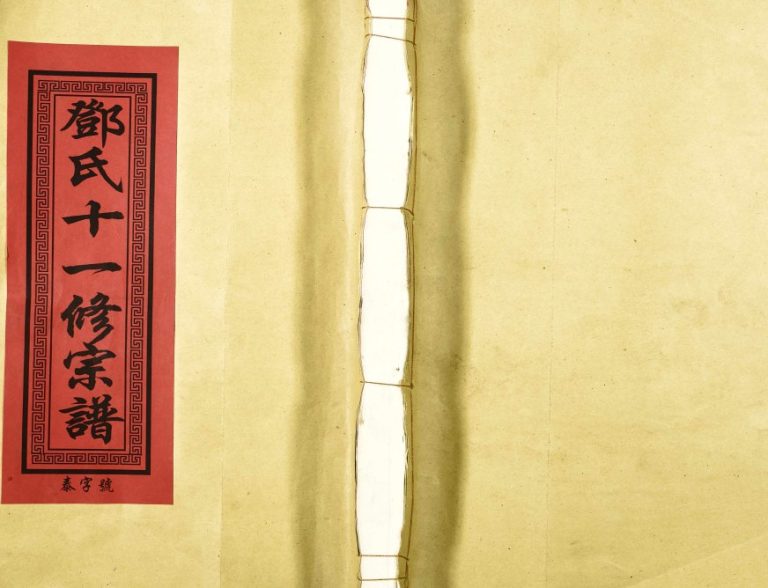 鄧氏十一修宗譜
泰字號